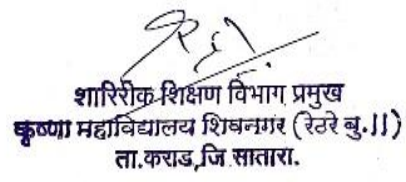 शारिरीक शिक्षण विभाग प्रमुख
कृष्णा महाविद्यालय शिवनगर (रेठरे बु.॥)
ता.कराड,जि सातारा.